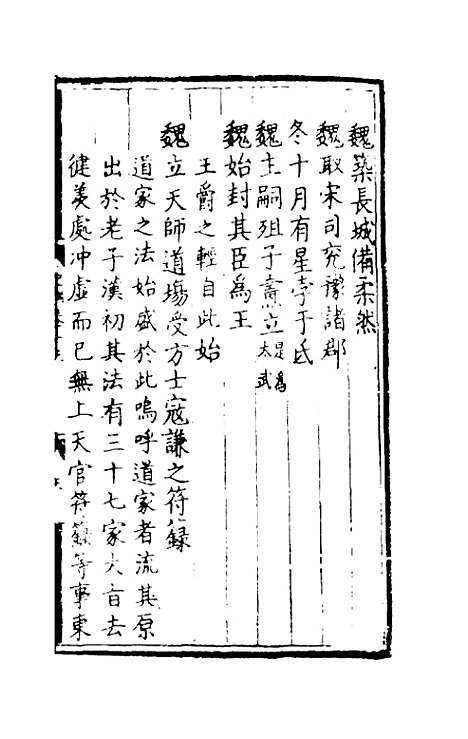 魏築長城備柔然
魏取宋司兖豫諸郡
冬十月有星孛于氐
魏主嗣殂子燾立是爲太武
魏始封其臣爲王
王爵之輕自此始
魏立天師道場受方士寇謙之符籙
道家之法始盛於此嗚呼道家者流其原
出於老子漢初其法有三十七家大旨去
健羡處冲虛而已無上天官符籙等事東